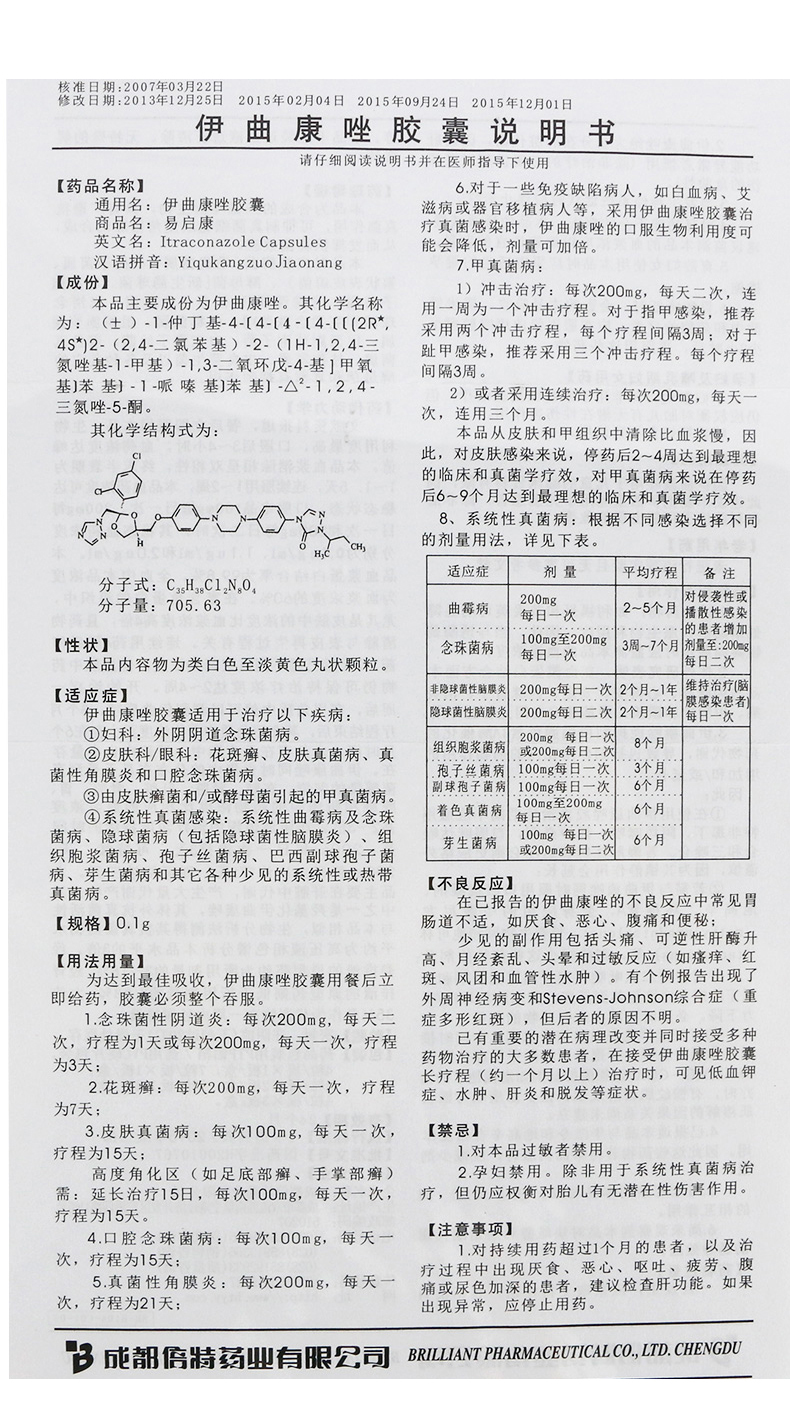 核准日期:2007年03月22日
修改日期:2013年12月25日 2015年02月04日 2015年09月24日 2015年12月01日
伊曲康唑胶囊说明书
请仔细阅读说明书并在医师指导下使用
【药品名称】
通用名：伊曲康唑胶囊
商品名：易启康
英文名：Itraconazole Capsules
汉语拼音：Yiqukangzuo Jiaonang
【成份】
本品主要成份为伊曲康唑。其化学名称
为：（±）-1-仲丁基-4-[4-[4-[4-[[(2R*,
4S*)2-（2,4-二氯苯基）-2-（1H-1,2,4-三
氮唑基-1-甲基）-1,3-二氧环戊-4-基]甲氧
基]苯基]-1-哌嗪基]苯基]-△²-1,2,4-
三氮唑-5-酮。
其化学结构式为：
Cl
Cl
N
N
N
O
O
H
O
N
N
N
N
N
O
H₃C
CH₃
分子式：C₃₅H₃₈Cl₂N₈O₄
分子量：705.63
【性状】
本品内容物为类白色至淡黄色丸状颗粒。
【适应症】
伊曲康唑胶囊适用于治疗以下疾病：
①妇科：外阴阴道念珠菌病。
②皮肤科/眼科：花斑癣、皮肤真菌病、真
菌性角膜炎和口腔念珠菌病。
③由皮肤癣菌和/或酵母菌引起的甲真菌病。
④系统性真菌感染：系统性曲霉病及念珠
菌病、隐球菌病（包括隐球菌性脑膜炎）、组
织胞浆菌病、孢子丝菌病、巴西副球孢子菌
病、芽生菌病和其它各种少见的系统性或热带
真菌病。
【规格】0.1g
【用法用量】
为达到最佳吸收，伊曲康唑胶囊用餐后立
即给药，胶囊必须整个吞服。
1.念珠菌性阴道炎：每次200mg，每天二
次，疗程为1天或每次200mg，每天一次，疗程
为3天；
2.花斑癣：每次200mg，每天一次，疗程
为7天；
3.皮肤真菌病：每次100mg，每天一次，
疗程为15天；
高度角化区（如足底部癣、手掌部癣）
需：延长治疗15日，每次100mg，每天一次，
疗程为15天。
4.口腔念珠菌病：每次100mg，每天一
次，疗程为15天；
5.真菌性角膜炎：每次200mg，每天一
次，疗程为21天；
6.对于一些免疫缺陷病人，如白血病、艾
滋病或器官移植病人等，采用伊曲康唑胶囊治
疗真菌感染时，伊曲康唑的口服生物利用度可
能会降低，剂量可加倍。
7.甲真菌病：
1）冲击治疗：每次200mg，每天二次，连
用一周为一个冲击疗程。对于指甲感染，推荐
采用两个冲击疗程，每个疗程间隔3周；对于
趾甲感染，推荐采用三个冲击疗程。每个疗程
间隔3周。
2）或者采用连续治疗：每次200mg，每天一
次，连用三个月。
本品从皮肤和甲组织中清除比血浆慢，因
此，对皮肤感染来说，停药后2~4周达到最理想
的临床和真菌学疗效，对甲真菌病来说在停药
后6~9个月达到最理想的临床和真菌学疗效。
8、系统性真菌病：根据不同感染选择不同
的剂量用法，详见下表。
适应症 剂量 平均疗程 备注
曲霉病 200mg 每日一次 2~5个月 对侵袭性或播散性感染的患者增加剂量至:200mg每日二次
念珠菌病 100mg至200mg 每日一次 3周~7个月
非隐球菌性脑膜炎 200mg每日一次 2个月~1年 维持治疗(脑膜感染患者)每日一次
隐球菌性脑膜炎 200mg每日二次 2个月~1年
组织胞浆菌病 200mg 每日一次或200mg每日二次 8个月
孢子丝菌病 100mg每日一次 3个月
副球孢子菌病 100mg每日一次 6个月
着色真菌病 100mg至200mg 每日一次 6个月
芽生菌病 100mg 每日一次或200mg每日二次 6个月
【不良反应】
在已报告的伊曲康唑的不良反应中常见胃
肠道不适，如厌食、恶心、腹痛和便秘；
少见的副作用包括头痛、可逆性肝酶升
高、月经紊乱、头晕和过敏反应（如瘙痒、红
斑、风团和血管性水肿）。有个例报告出现了
外周神经病变和Stevens-Johnson综合症（重
症多形红斑），但后者的原因不明。
已有重要的潜在病理改变并同时接受多种
药物治疗的大多数患者，在接受伊曲康唑胶囊
长疗程（约一个月以上）治疗时，可见低血钾
症、水肿、肝炎和脱发等症状。
【禁忌】
1.对本品过敏者禁用。
2.孕妇禁用。除非用于系统性真菌病治
疗，但仍应权衡对胎儿有无潜在性伤害作用。
【注意事项】
1.对持续用药超过1个月的患者，以及治
疗过程中出现厌食、恶心、呕吐、疲劳、腹
痛或尿色加深的患者，建议检查肝功能。如果
出现异常，应停止用药。
成都倍特药业有限公司 BRILLIANT PHARMACEUTICAL CO., LTD. CHENGDU